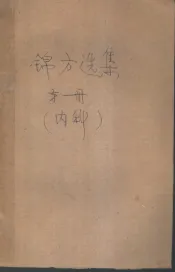 锦方选集
第一册
(内部)